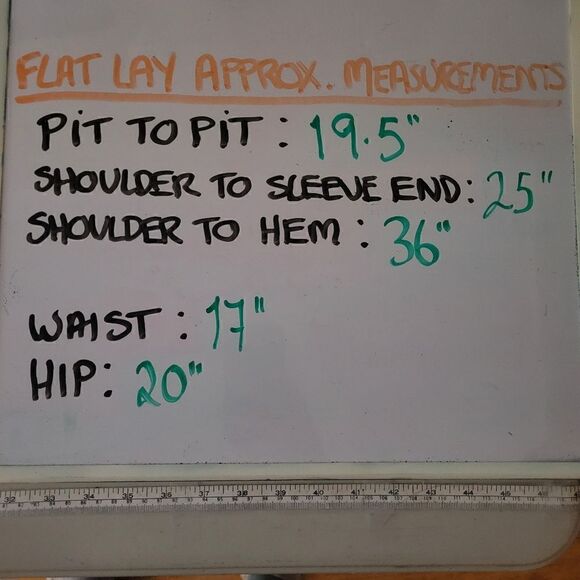 FLAT LAY APPROX. MEASUREMENTS
PIT TO PIT : 19.5"
SHOULDER TO SLEEVE END: 25"
SHOULDER TO HEM : 36"
WAIST : 17"
HIP: 20"
32 33 34 35 36 37 38 39 40 41 42 43 44 45 46